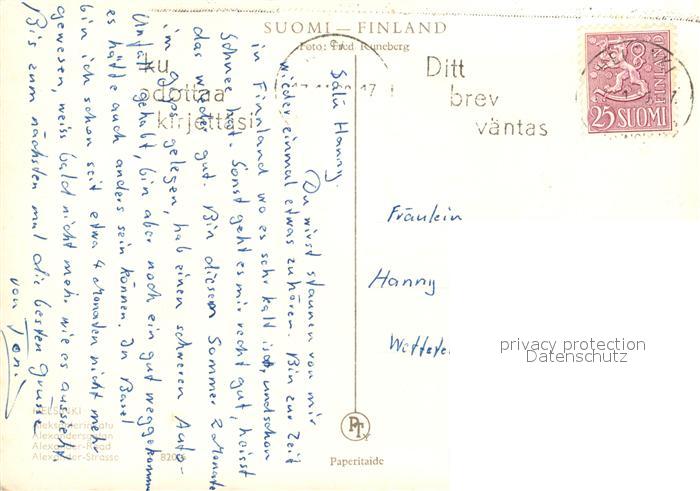 SUOMI — FINLAND
Foto: Fred Runeberg
odottaa
kirjettäsi
Ditt
brev
väntas
25 SUOMI
FINLAND
Salü Hanny.
Du wirst staunen von mir
wieder einmal etwas zu hören. Bin zur Zeit
in Finnland wo es sehr kalt ist, und schon
Schnee hat. Sonst geht es mir recht gut, heisst
das wieder gut. Bin diesen Sommer 2 Monate
im Gyps gelegen, hab einen schweren Auto-
Unfall gehabt, bin aber noch ein gut weggekommen
es hätte auch anders sein können. In Basel
bin ich schon seit etwa 4 Monaten nicht mehr
gewesen, weiss bald nicht mehr wie es aussieht.
Bis zum nächsten mal die besten grüsse
von Toni
Fräulein
Hanny
privacy protection
Datenschutz
HELSINKI
Aleksanterinkatu
Alexandersgatan
Alexander-Road
Alexander-Strasse
PT
Paperitaide